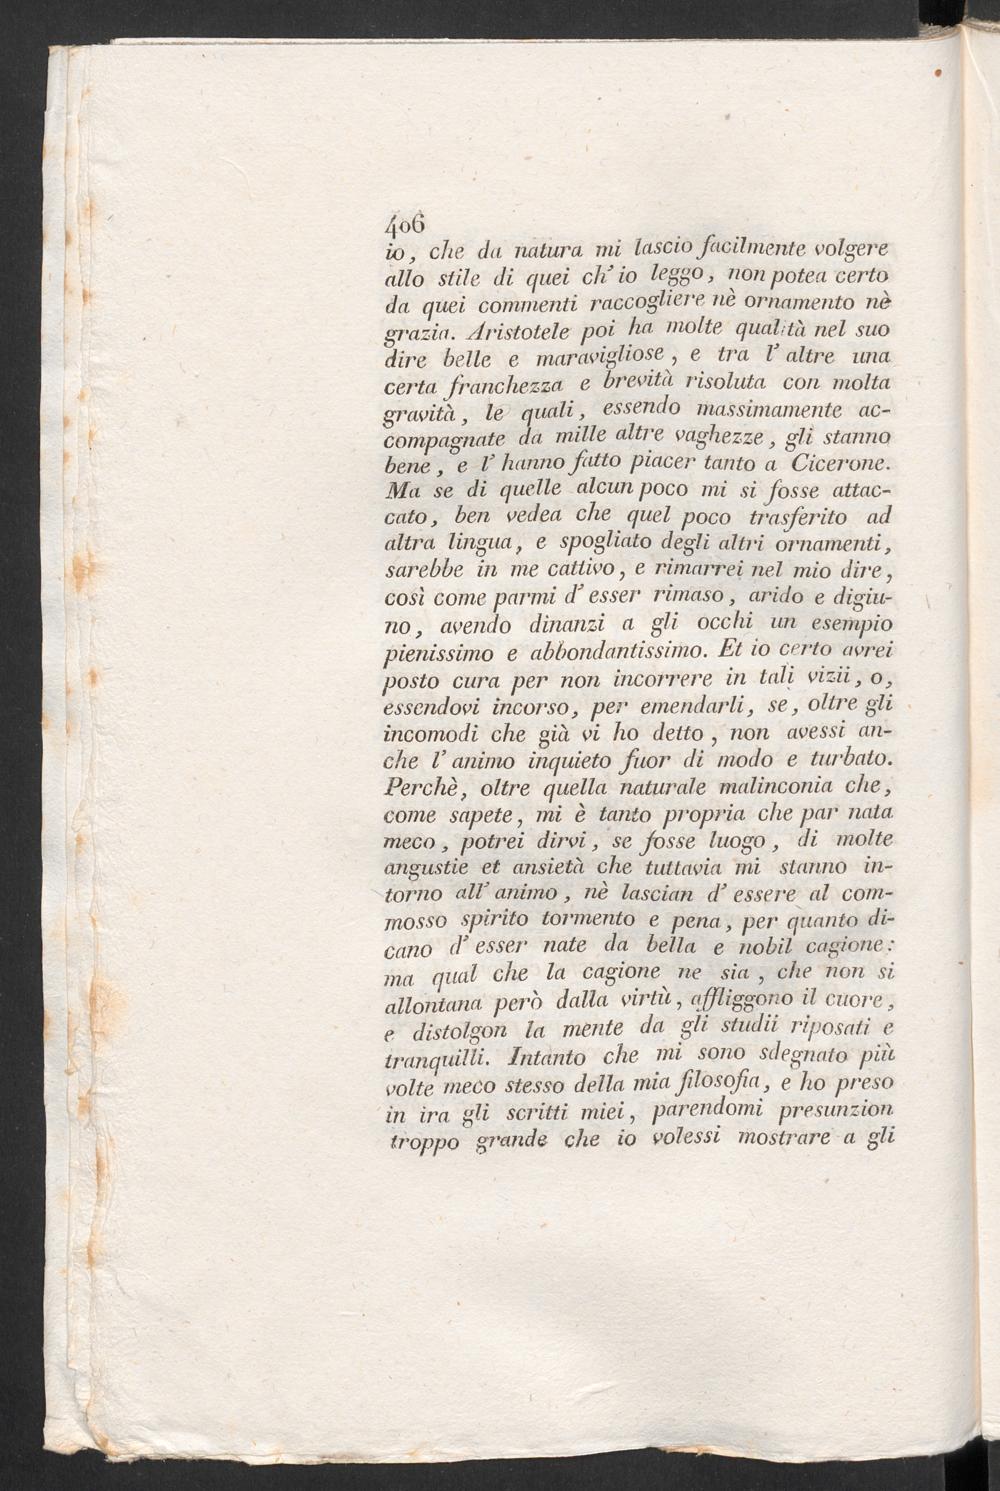 406
io, che da natura mi lascio facilmente volgere
allo stile di quei ch' io leggo, non potea certo
da quei commenti raccogliere nè ornamento nè
grazia. Aristotele poi ha molte qualità nel suo
dire belle e maravigliose, e tra l' altre una
certa franchezza e brevità risoluta con molta
gravità, le quali, essendo massimamente ac-
compagnate da mille altre vaghezze, gli stanno
bene, e l' hanno fatto piacer tanto a Cicerone.
Ma se di quelle alcun poco mi si fosse attac-
cato, ben vedea che quel poco trasferito ad
altra lingua, e spogliato degli altri ornamenti,
sarebbe in me cattivo, e rimarrei nel mio dire,
così come parmi d' esser rimaso, arido e digiu-
no, avendo dinanzi a gli occhi un esempio
pienissimo e abbondantissimo. Et io certo avrei
posto cura per non incorrere in tali vizii, o,
essendovi incorso, per emendarli, se, oltre gli
incomodi che già vi ho detto, non avessi an-
che l' animo inquieto fuor di modo e turbato.
Perchè, oltre quella naturale malinconia che,
come sapete, mi è tanto propria che par nata
meco, potrei dirvi, se fosse luogo, di molte
angustie et ansietà che tuttavia mi stanno in-
torno all' animo, nè lascian d' essere al com-
mosso spirito tormento e pena, per quanto di-
cano d' esser nate da bella e nobil cagione:
ma qual che la cagione ne sia, che non si
allontana però dalla virtù, affliggono il cuore,
e distolgon la mente da gli studii riposati e
tranquilli. Intanto che mi sono sdegnato più
volte meco stesso della mia filosofia, e ho preso
in ira gli scritti miei, parendomi presunzion
troppo grande che io volessi mostrare a gli